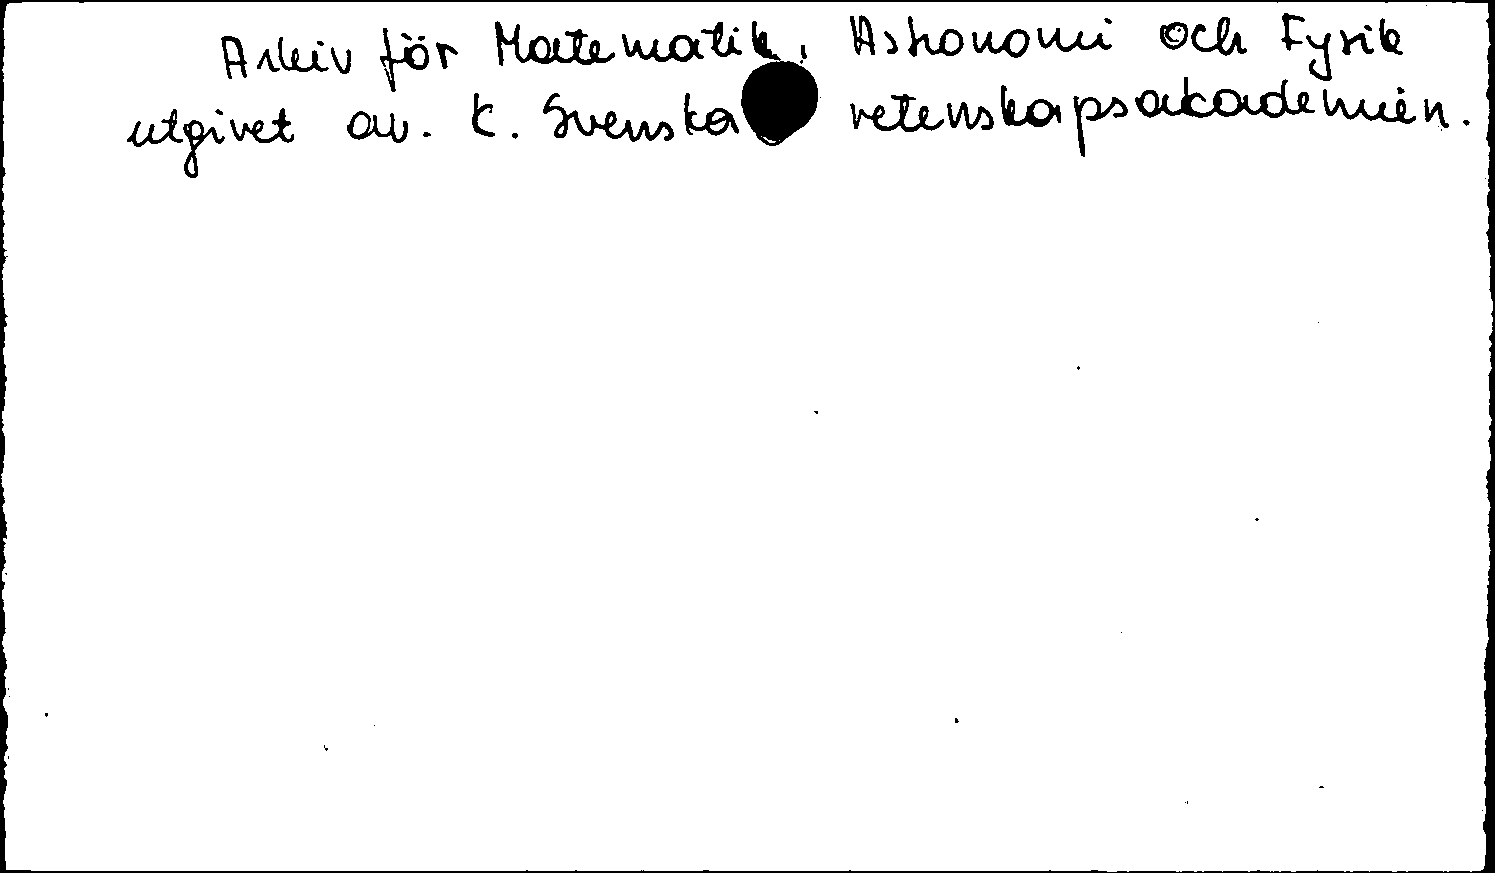 Arkiv för Matematik, Astronomi och Fysik
utgivet av. K. Svenska vetenskapsakademien.